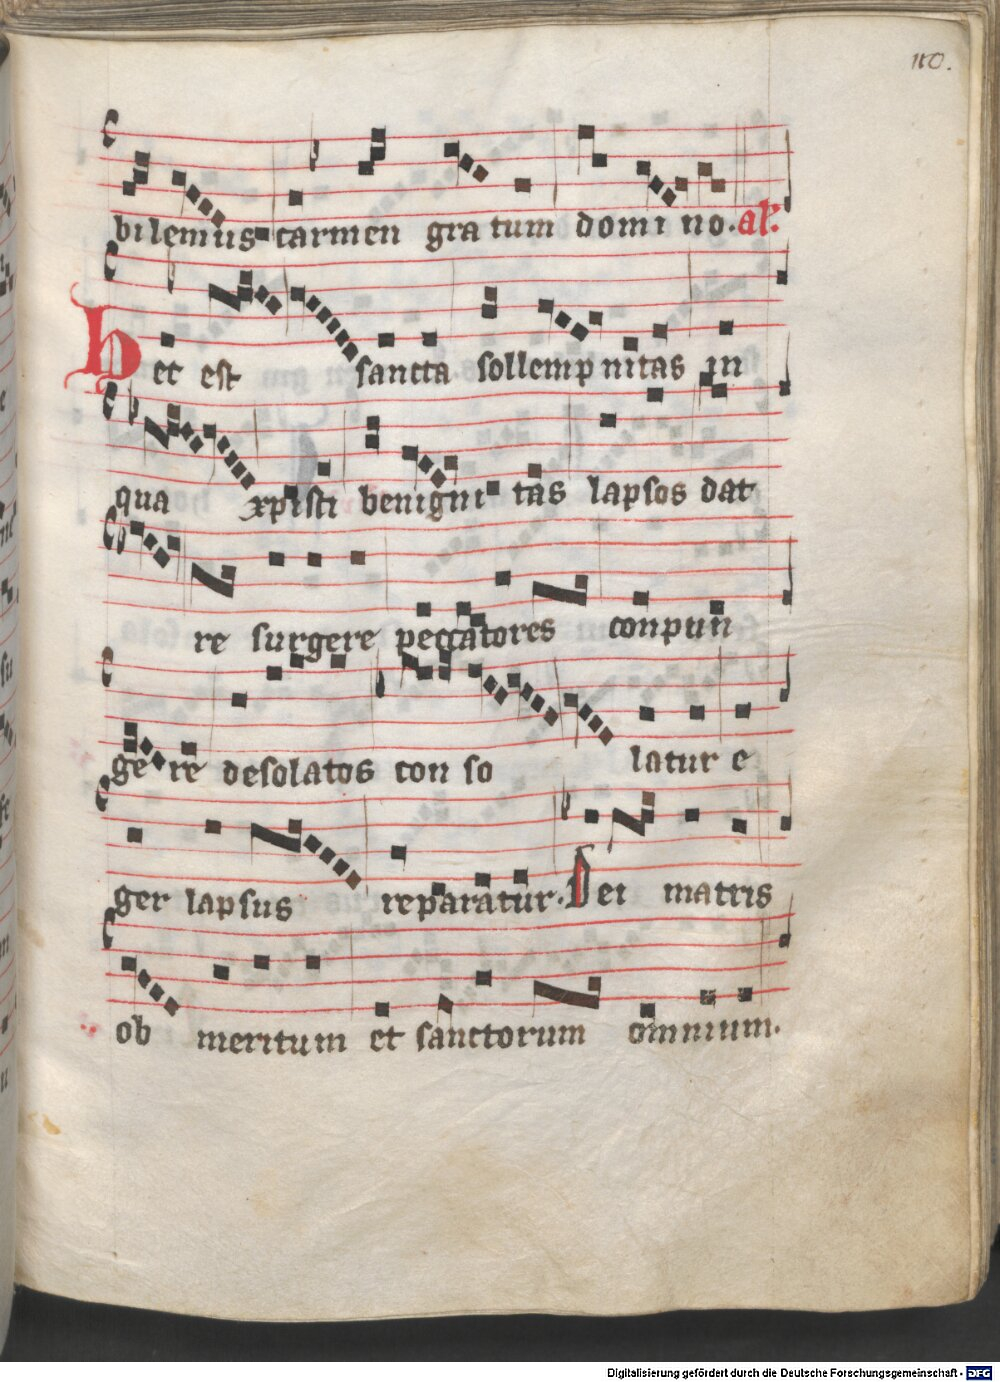 110.
bilemus carmen gra tum domi no. al'.
Hec est sancta sollemp nitas in
qua xpisti benigni tas lapsos dat
re surgere peccatores conpun
ge re desolatos con so latur e
ger lapsus reparatur. Dei matris
ob meritum et sanctorum omnium.
Digitalisierung gefördert durch die Deutsche Forschungsgemeinschaft - DFG